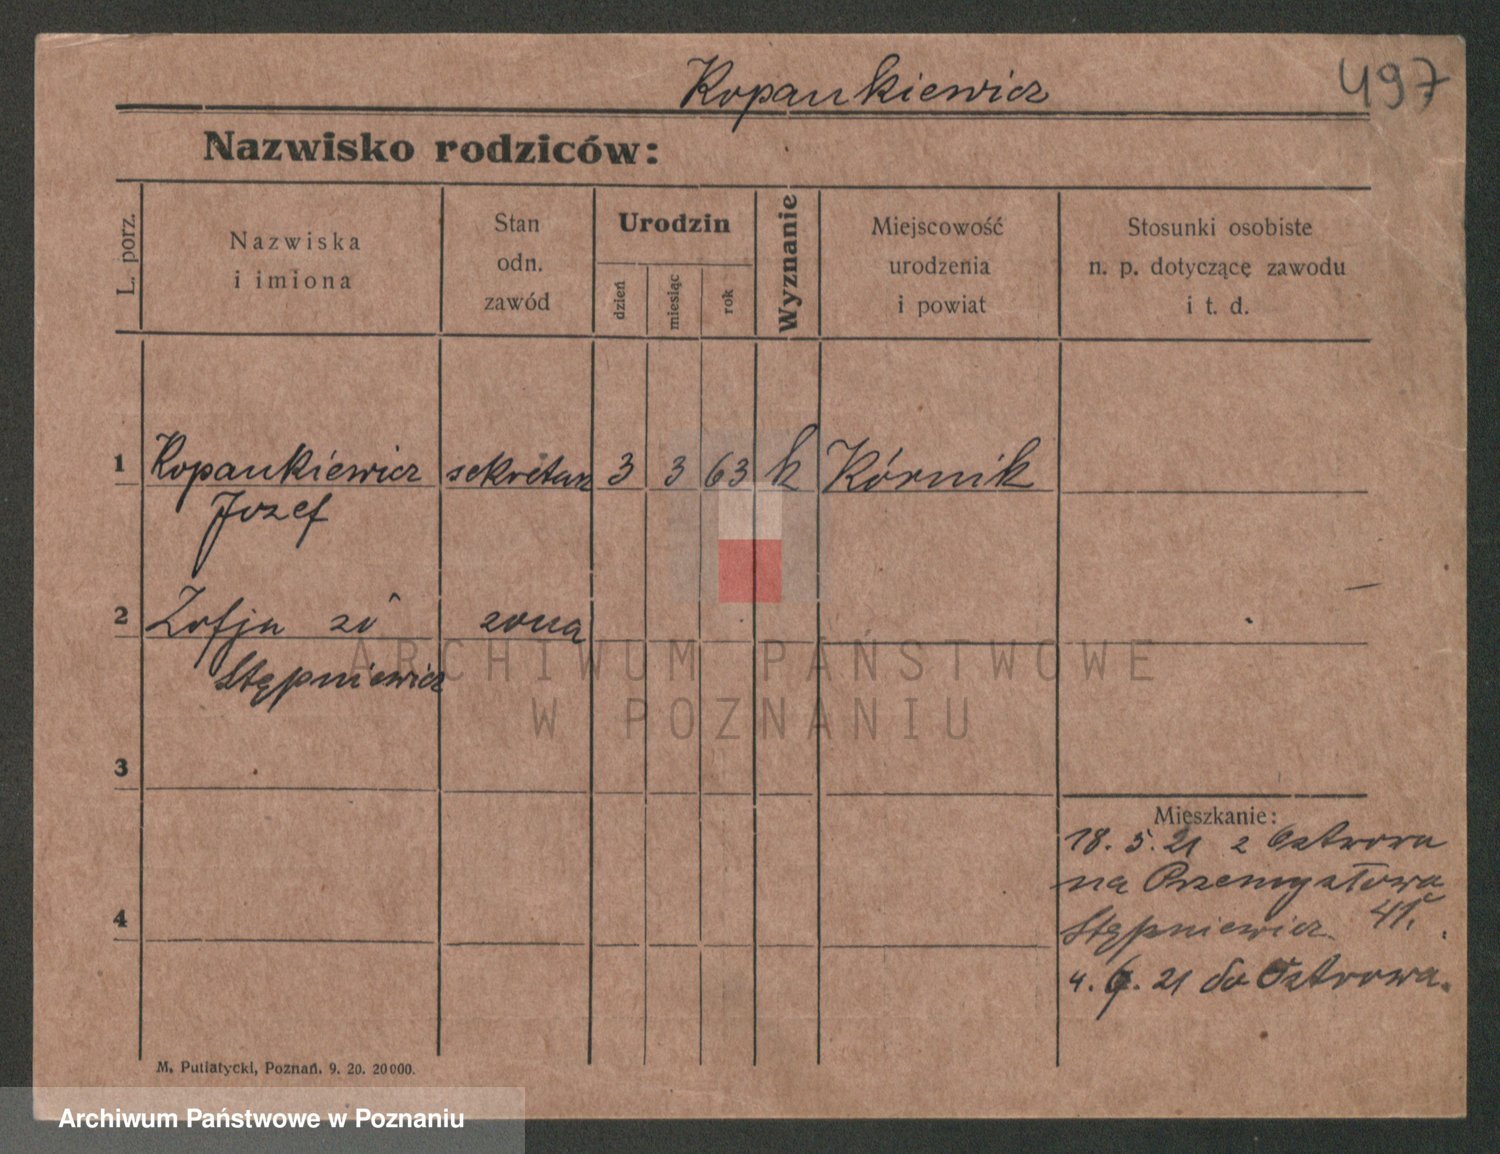 Kopankiewicz
497
Nazwisko rodziców:
L. porz.
Nazwiska
i imiona
Stan
odn.
zawód
Urodzin
dzień
miesiąc
rok
Wyznanie
Miejscowość
urodzenia
i powiat
Stosunki osobiste
n. p. dotyczącę zawodu
i t. d.
1 Kopankiewicz sekretarz 3 3 63 k Kórnik
Jozef
2 Zofja zd żona
Stępniewicz
3
4
Mieszkanie:
18. 5. 21 z Ostrowa
na Przemysłowa
Stępniewicz 41.
4. 6. 21 do Ostrowa.
M. Putiatycki, Poznań. 9. 20. 20000.
ARCHIWUM PAŃSTWOWE
W POZNANIU
Archiwum Państwowe w Poznaniu